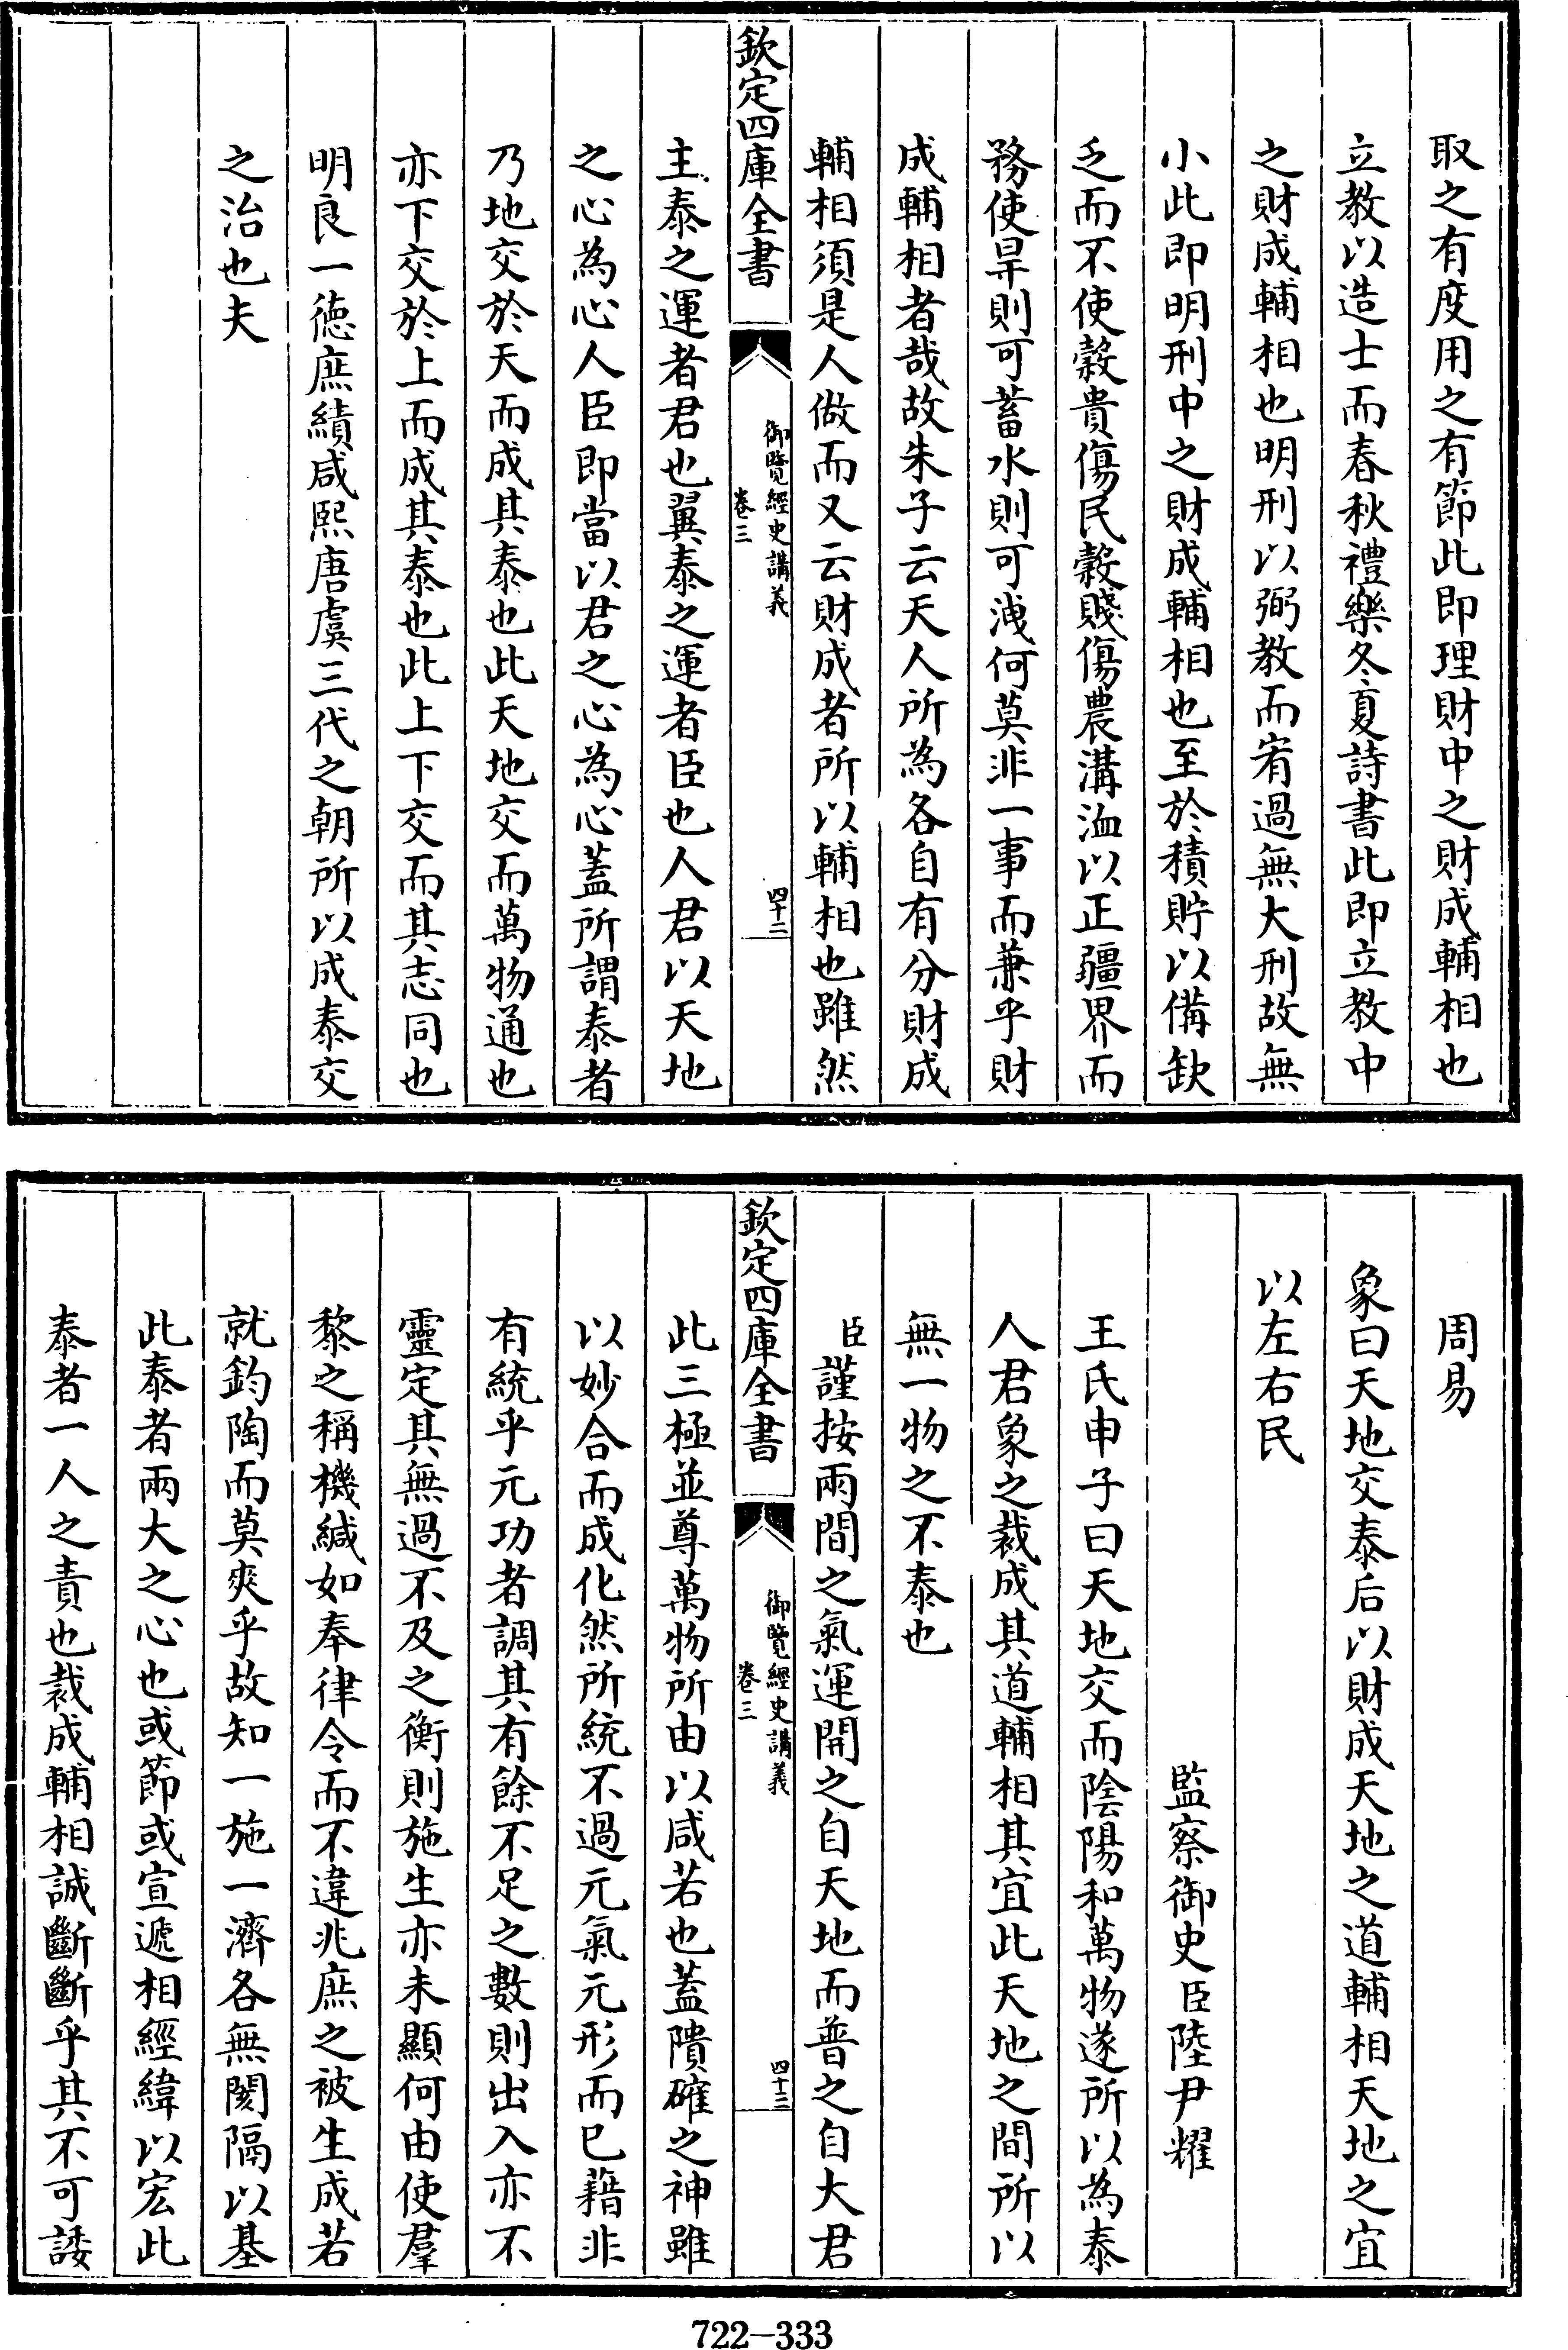 取之有度用之有節此即理財中之財成輔相也
立教以造士而春秋禮樂冬夏詩書此即立教中
之財成輔相也明刑以弼教而宥過無大刑故無
小此即明刑中之財成輔相也至於積貯以備缺
乏而不使糓貴傷民糓賤傷農溝洫以正疆界而
務使旱則可蓄水則可洩何莫非一事而兼乎財
成輔相者哉故朱子云天人所為各自有分財成
輔相須是人做而又云財成者所以輔相也雖然
欽定四庫全書
御覽經史講義
卷三
四十二
主泰之運者君也翼泰之運者臣也人君以天地
之心為心人臣即當以君之心為心蓋所謂泰者
乃地交於天而成其泰也此天地交而萬物通也
亦下交於上而成其泰也此上下交而其志同也
明良一徳庶績咸熙唐虞三代之朝所以成泰交
之治也夫
周易
象曰天地交泰后以財成天地之道輔相天地之宜
以左右民
監察御史臣陸尹耀
王氏申子曰天地交而陰陽和萬物遂所以為泰
人君象之裁成其道輔相其宜此天地之間所以
無一物之不泰也
臣謹按兩間之氣運開之自天地而普之自大君
欽定四庫全書
御覽經史講義
卷三
四十三
此三極並尊萬物所由以咸若也蓋隤確之神雖
以妙合而成化然所統不過元氣元形而已藉非
有統乎元功者調其有餘不足之數則出入亦不
靈定其無過不及之衡則施生亦未顯何由使羣
黎之稱機緘如奉律令而不違兆庶之被生成若
就鈞陶而莫爽乎故知一施一濟各無閡隔以基
此泰者兩大之心也或節或宣遞相經緯以宏此
泰者一人之責也裁成輔相誠斷斷乎其不可諉
722-333